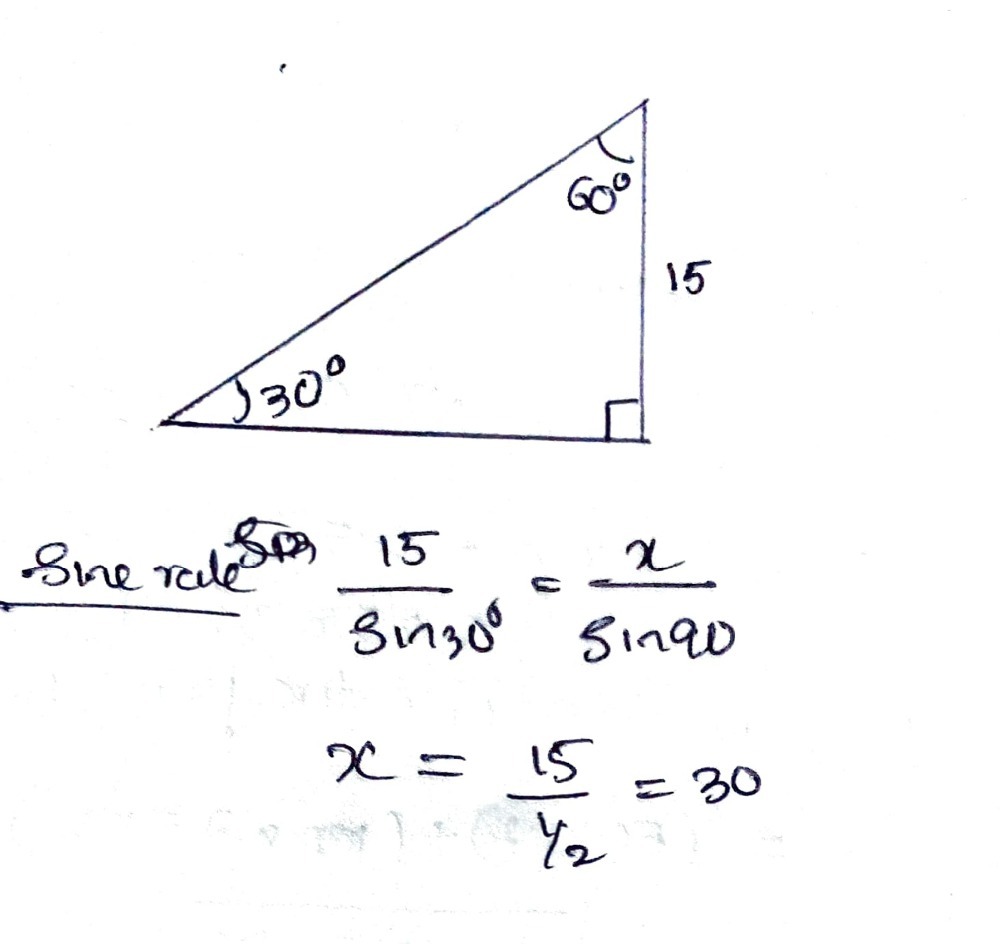 60°
15
30°
Sine rule 15/Sin30° = x/Sin90
x = 15/½ = 30